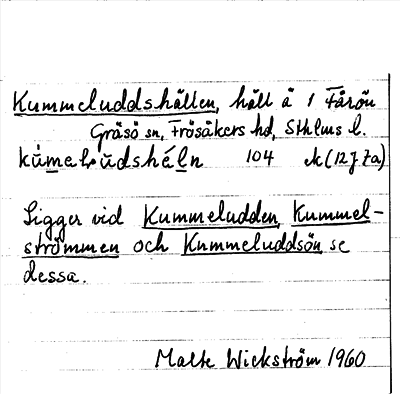 Kummeluddshällen, häll å 1 Fårön
Gräsö sn, Frösåkers hd, Sthlms l.
kúmelùdshéln 104 ek (12 J 7a)
Ligger vid Kummeludden, Kummel-
strömmen och Kummeluddsön se
dessa.
Malte Wickström 1960